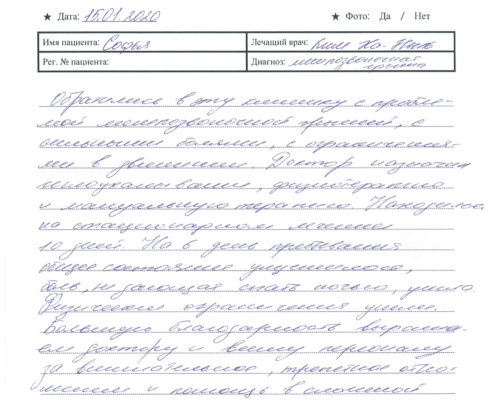 ★ Дата: 15.01.2020 ★ Фото: Да / Нет
Имя пациента: София Лечащий врач: Ким Хо-
Рег. № пациента: Диагноз: межпозвоночная грыжа
Обратились в эту клинику с пробле-
мой межпозвоночной грыжей, с
сильными болями, с ограничения-
ми в движении. Доктор назначил
иглоукалывание, физиотерапию
и мануальную терапию. Находилась
на стационарном лечении
10 дней. На 6 день пребывания
общее состояние улучшилось,
боль, не дающая спать ночью, ушла.
Физические ограничения ушли.
Большую благодарность выража-
ем доктору и всему персоналу
за внимательное, трепетное отно-
шение и помощь в сложной